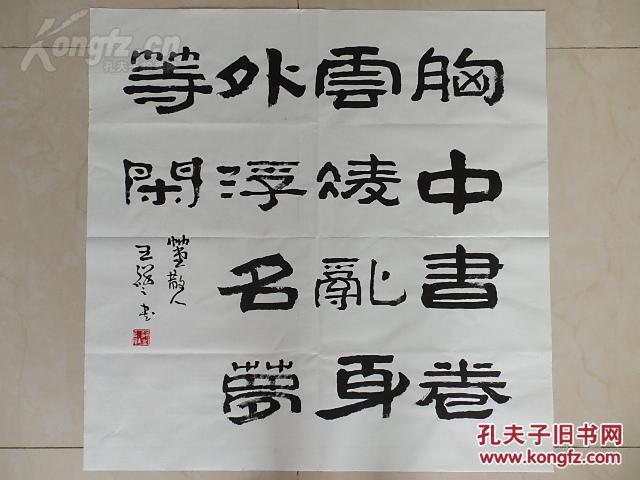 胸中書卷
雲凌亂身
外浮名夢
等閑
散人
王 书
Kongfz.cn
孔夫子旧书网
www.kongfz.com